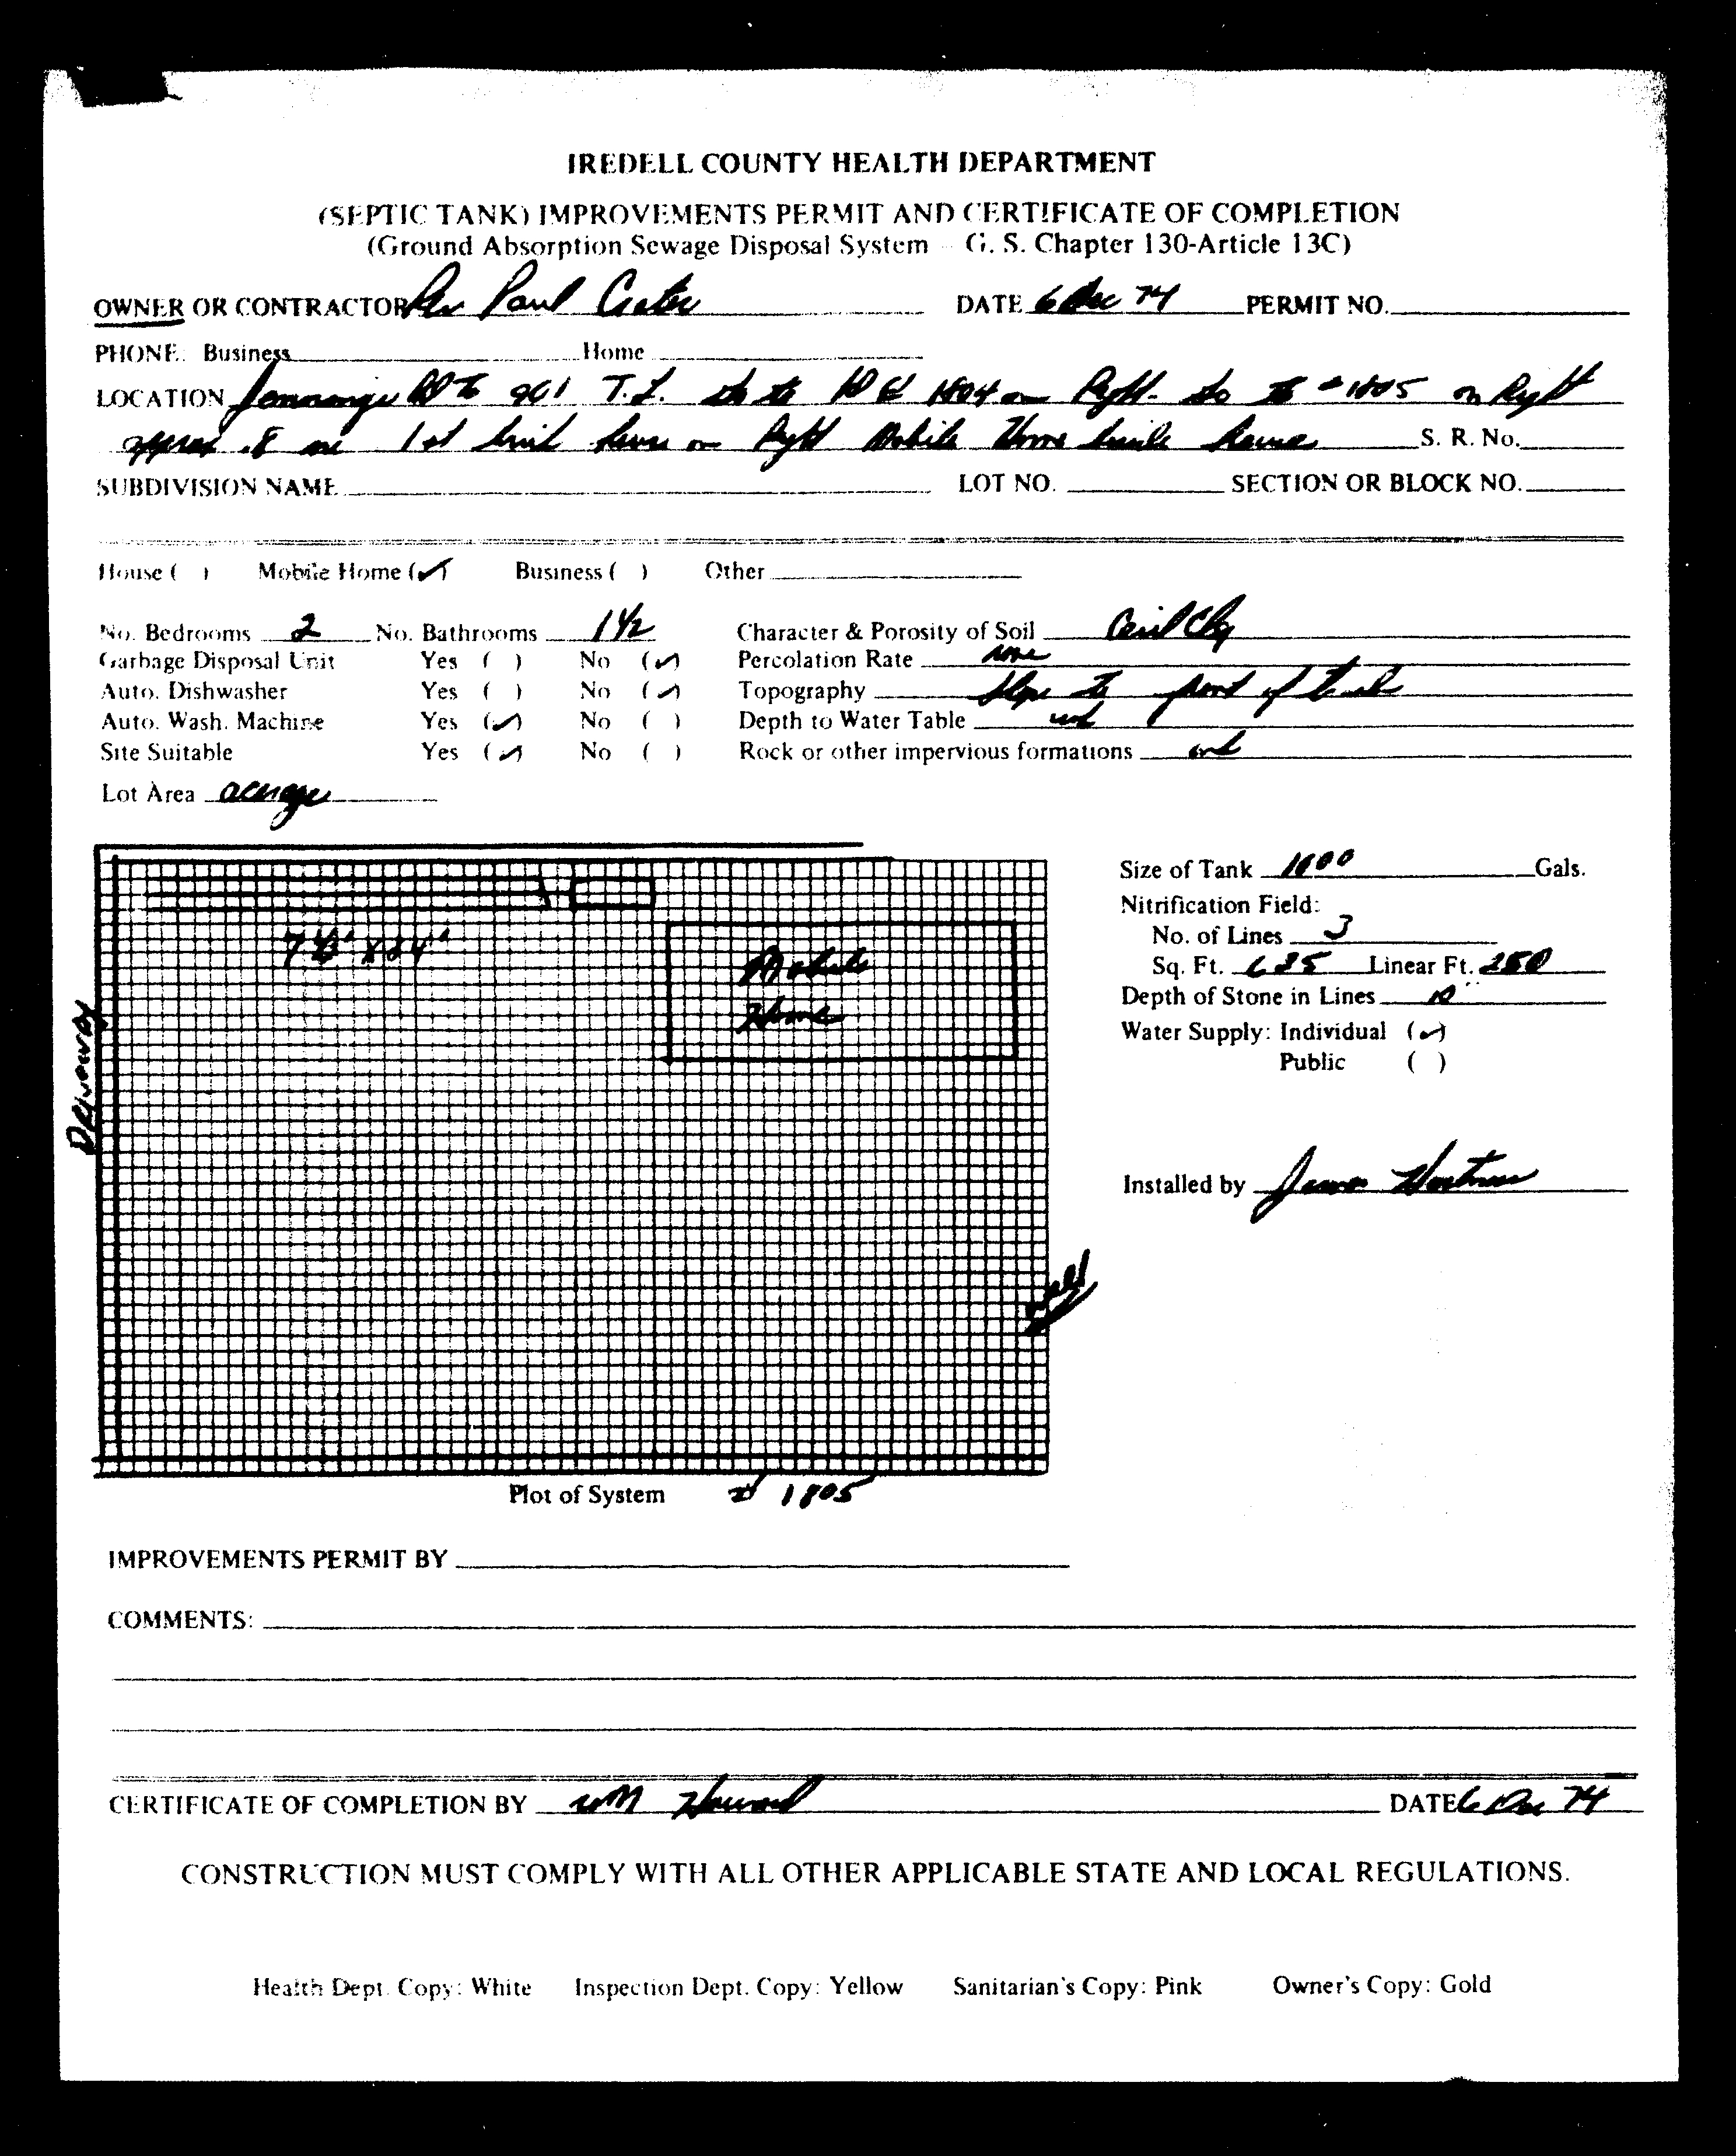 IREDELL COUNTY HEALTH DEPARTMENT
(SEPTIC TANK) IMPROVEMENTS PERMIT AND CERTIFICATE OF COMPLETION
(Ground Absorption Sewage Disposal System - G. S. Chapter 130-Article 13C)
OWNER OR CONTRACTOR Rev Paul DATE 6 Dec 74 PERMIT NO.
PHONE: Business Home
LOCATION Rd to 901 T.L. Go to Rd # 1804 on Right. Go to # 1805 on Right
approx .8 mi 1st brick house on Right Mobile Home beside house S. R. No.
SUBDIVISION NAME LOT NO. SECTION OR BLOCK NO.
House ( ) Mobile Home (✓) Business ( ) Other
No. Bedrooms 2 No. Bathrooms 1½ Character & Porosity of Soil Cecil Clay
Garbage Disposal Unit Yes ( ) No (✓) Percolation Rate none
Auto. Dishwasher Yes ( ) No (✓) Topography Slope to of
Auto. Wash. Machine Yes (✓) No ( ) Depth to Water Table
Site Suitable Yes (✓) No ( ) Rock or other impervious formations
Lot Area acreage
Size of Tank 1000 Gals.
Nitrification Field:
No. of Lines 3
Sq. Ft. 625 Linear Ft. 250
Depth of Stone in Lines 10"
Water Supply: Individual (✓)
Public ( )
Installed by James
Mobile
Home
Driveway
well
Plot of System # 1805
IMPROVEMENTS PERMIT BY
COMMENTS:
CERTIFICATE OF COMPLETION BY WM Howard DATE 6 Dec 74
CONSTRUCTION MUST COMPLY WITH ALL OTHER APPLICABLE STATE AND LOCAL REGULATIONS.
Health Dept. Copy: White Inspection Dept. Copy: Yellow Sanitarian's Copy: Pink Owner's Copy: Gold